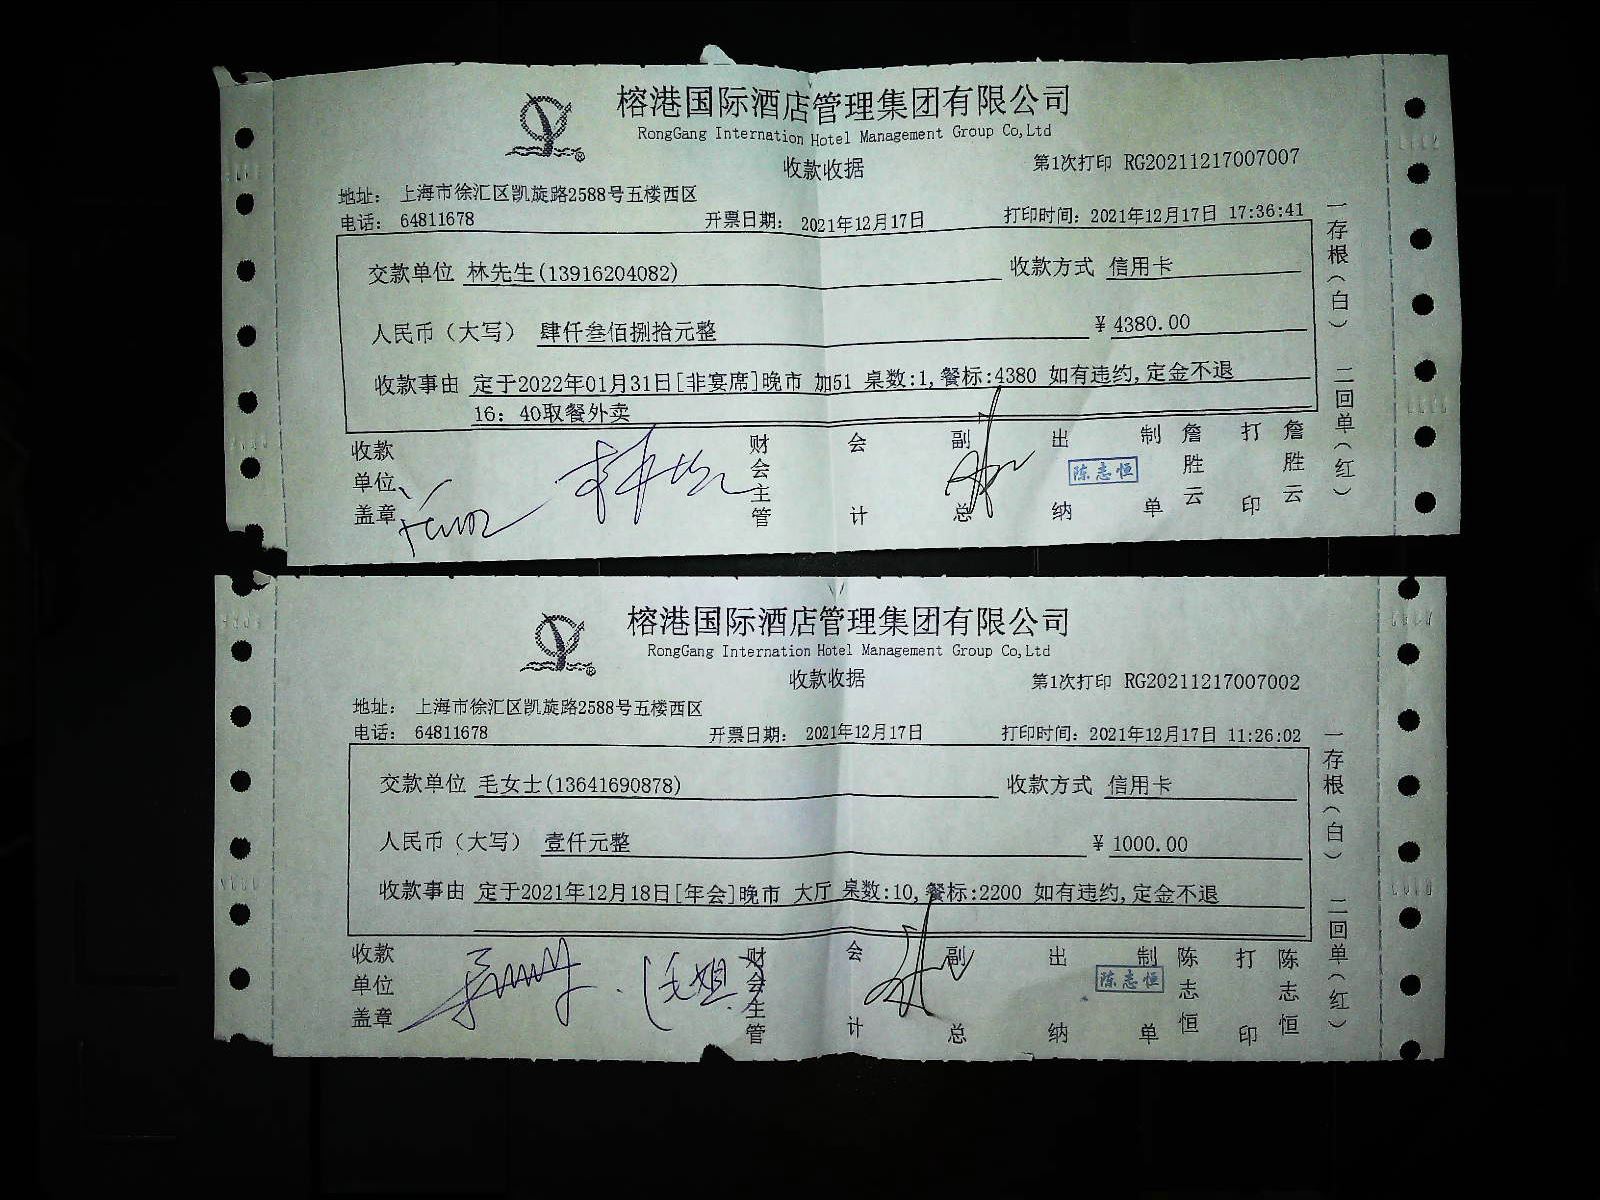 榕港国际酒店管理集团有限公司
RongGang Internation Hotel Management Group Co,Ltd
收款收据
第1次打印 RG20211217007007
地址： 上海市徐汇区凯旋路2588号五楼西区
电话： 64811678 开票日期： 2021年12月17日 打印时间：2021年12月17日 17:36:41
交款单位 林先生(13916204082) 收款方式 信用卡
人民币（大写） 肆仟叁佰捌拾元整 ￥4380.00
收款事由 定于2022年01月31日[非宴席]晚市 加51 桌数:1,餐标:4380 如有违约,定金不退
16：40取餐外卖
收款单位盖章 财会主管 会计 副总 出纳 陈志恒 制单 詹胜云 打印 詹胜云
一存根（白） 二回单（红）
榕港国际酒店管理集团有限公司
RongGang Internation Hotel Management Group Co,Ltd
收款收据
第1次打印 RG20211217007002
地址： 上海市徐汇区凯旋路2588号五楼西区
电话： 64811678 开票日期： 2021年12月17日 打印时间：2021年12月17日 11:26:02
交款单位 毛女士(13641690878) 收款方式 信用卡
人民币（大写） 壹仟元整 ￥1000.00
收款事由 定于2021年12月18日[年会]晚市 大厅 桌数:10,餐标:2200 如有违约,定金不退
收款单位盖章 毛姐 财会主管 会计 副总 出纳 陈志恒 制单 陈志恒 打印 陈志恒
一存根（白） 二回单（红）